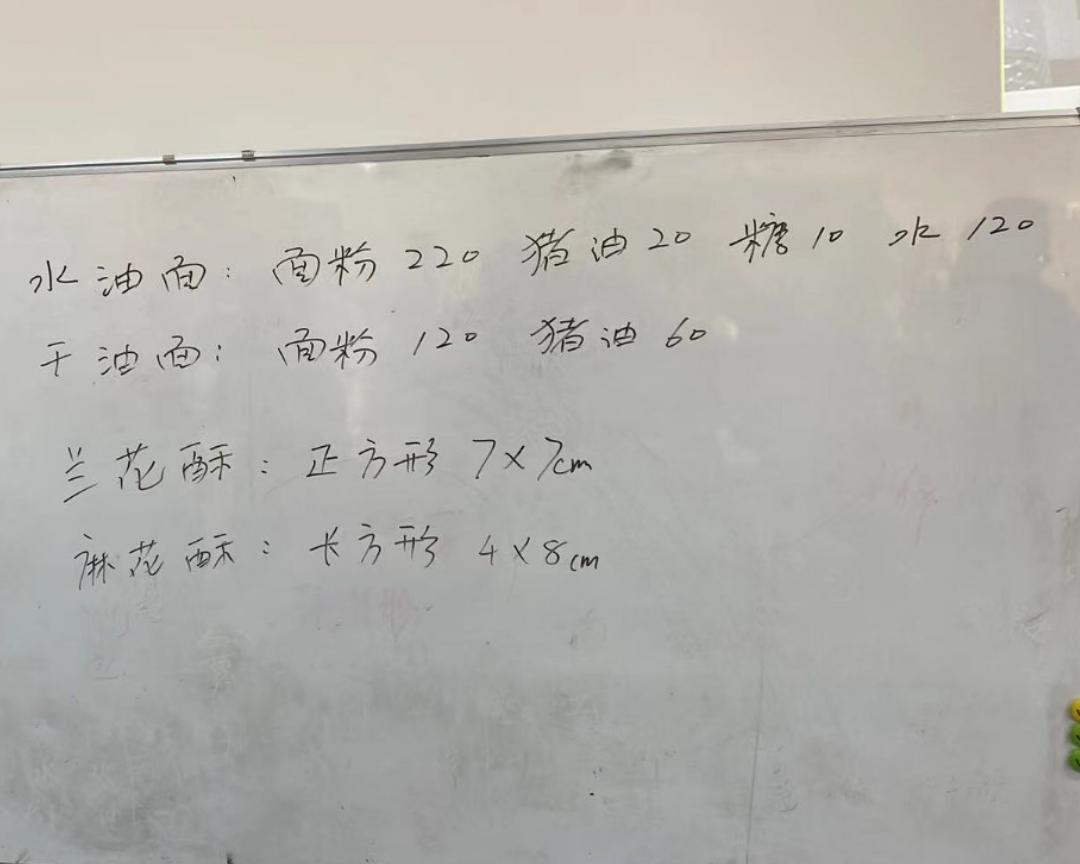 水油面：面粉 220 猪油 20 糖 10 水 120
干油面：面粉 120 猪油 60
兰花酥：正方形 7×7cm
麻花酥：长方形 4×8cm